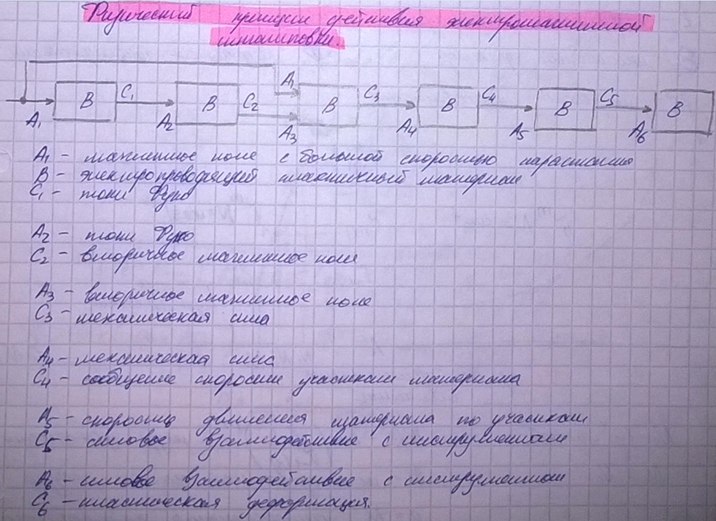 Физический принцип действия электромагнитной
штамповки.
A₁ B C₁ A₂ B C₂ A₁ A₃ B C₃ A₄ B C₄ A₅ B C₅ A₆ B
A₁ - магнитное поле с большой скоростью нарастания
B - электропроводящий пластичный материал
C₁ - токи Фуко
A₂ - токи Фуко
C₂ - вторичное магнитное поле
A₃ - вторичное магнитное поле
C₃ - механическая сила
A₄ - механическая сила
C₄ - сообщение скорости участкам материала
A₅ - скорость движения материала по участкам
C₅ - силовое взаимодействие с инструментом
A₆ - силовое взаимодействие с инструментом
C₆ - пластическая деформация.